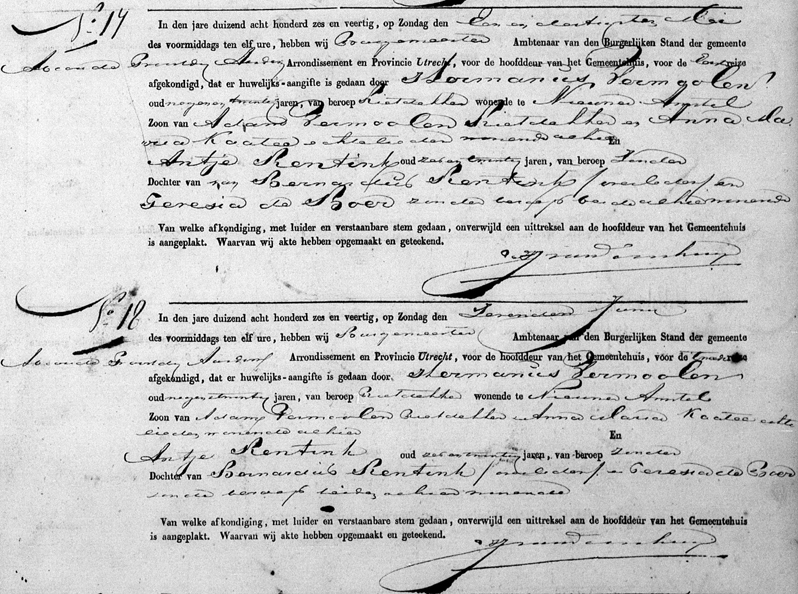 No. 17 In den jare duizend acht honderd zes en veertig, op Zondag den Een en dertigsten Mei
des voormiddags ten elf ure, hebben wij Burgemeester Ambtenaar van den Burgerlijken Stand der gemeente
Abcoude Proostdy Arrondissement en Provincie Utrecht, voor de hoofddeur van het Gemeentehuis, voor de Eerste reize
afgekondigd, dat er huwelijks-aangifte is gedaan door Hermanus Vermoolen
oud negenentwintig jaren, van beroep Rietdekker wonende te Nieuwer Amstel
Zoon van Adam Vermoolen Rietdekker en Anna Ma
ria Kaatee echtelieden wonende alhier En
Antje Rentink oud zesentwintig jaren, van beroep Zonder
Dochter van Bernardus Rentink overleden en
Teresia de Boer zonder beroep alhier wonende
Van welke afkondiging, met luider en verstaanbare stem gedaan, onverwijld een uittreksel aan de hoofddeur van het Gemeentehuis
is aangeplakt. Waarvan wij akte hebben opgemaakt en geteekend.
No. 18 In den jare duizend acht honderd zes en veertig, op Zondag den Zevenden Junij
des voormiddags ten elf ure, hebben wij Burgemeester Ambtenaar van den Burgerlijken Stand der gemeente
Abcoude Proostdy Arrondissement en Provincie Utrecht, voor de hoofddeur van het Gemeentehuis, voor de tweede reize
afgekondigd, dat er huwelijks-aangifte is gedaan door Hermanus Vermoolen
oud negenentwintig jaren, van beroep Rietdekker wonende te Nieuwer Amstel
Zoon van Adam Vermoolen Rietdekker Anna Maria Kaatee echte
lieden wonende alhier En
Antje Rentink oud zesentwintig jaren, van beroep zonder
Dochter van Bernardus Rentink overleden en Teresia de Boer
zonder beroep alhier wonende
Van welke afkondiging, met luider en verstaanbare stem gedaan, onverwijld een uittreksel aan de hoofddeur van het Gemeentehuis
is aangeplakt. Waarvan wij akte hebben opgemaakt en geteekend.